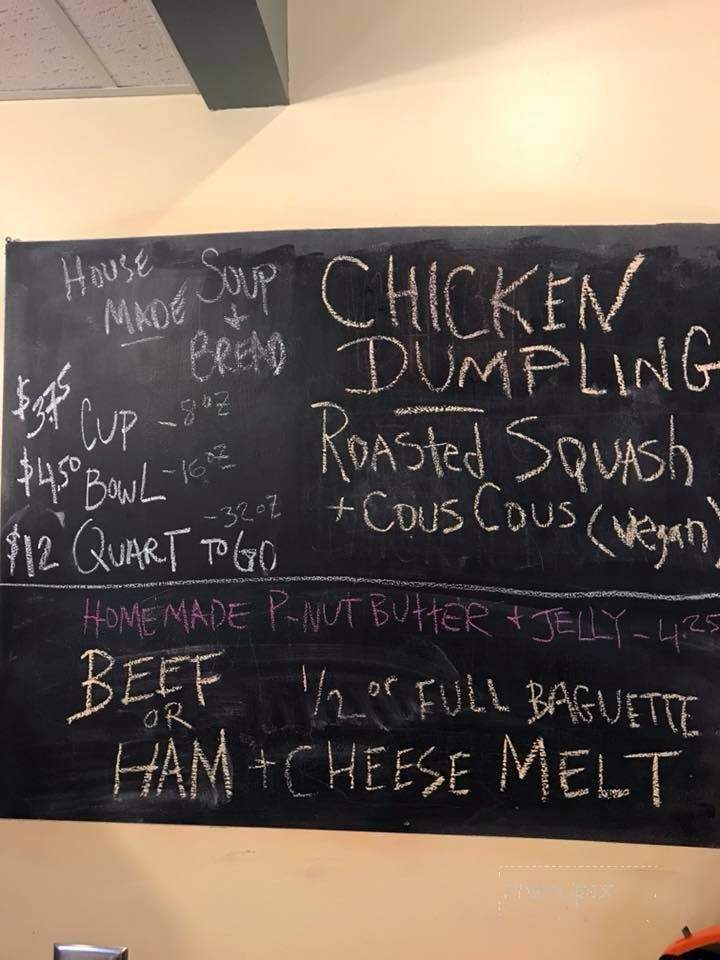 HOUSE SOUP
MADE +
BREAD
$3.75 CUP - 8oz
$4.50 BOWL - 16oz
- 32oz
$12 QUART TO GO
CHICKEN
DUMPLING
ROASTED SQUASH
+ COUS COUS (Vegan)
HOMEMADE P-NUT BUTTER + JELLY - 4.25
BEEF 1/2 or FULL BAGUETTE
OR
HAM + CHEESE MELT